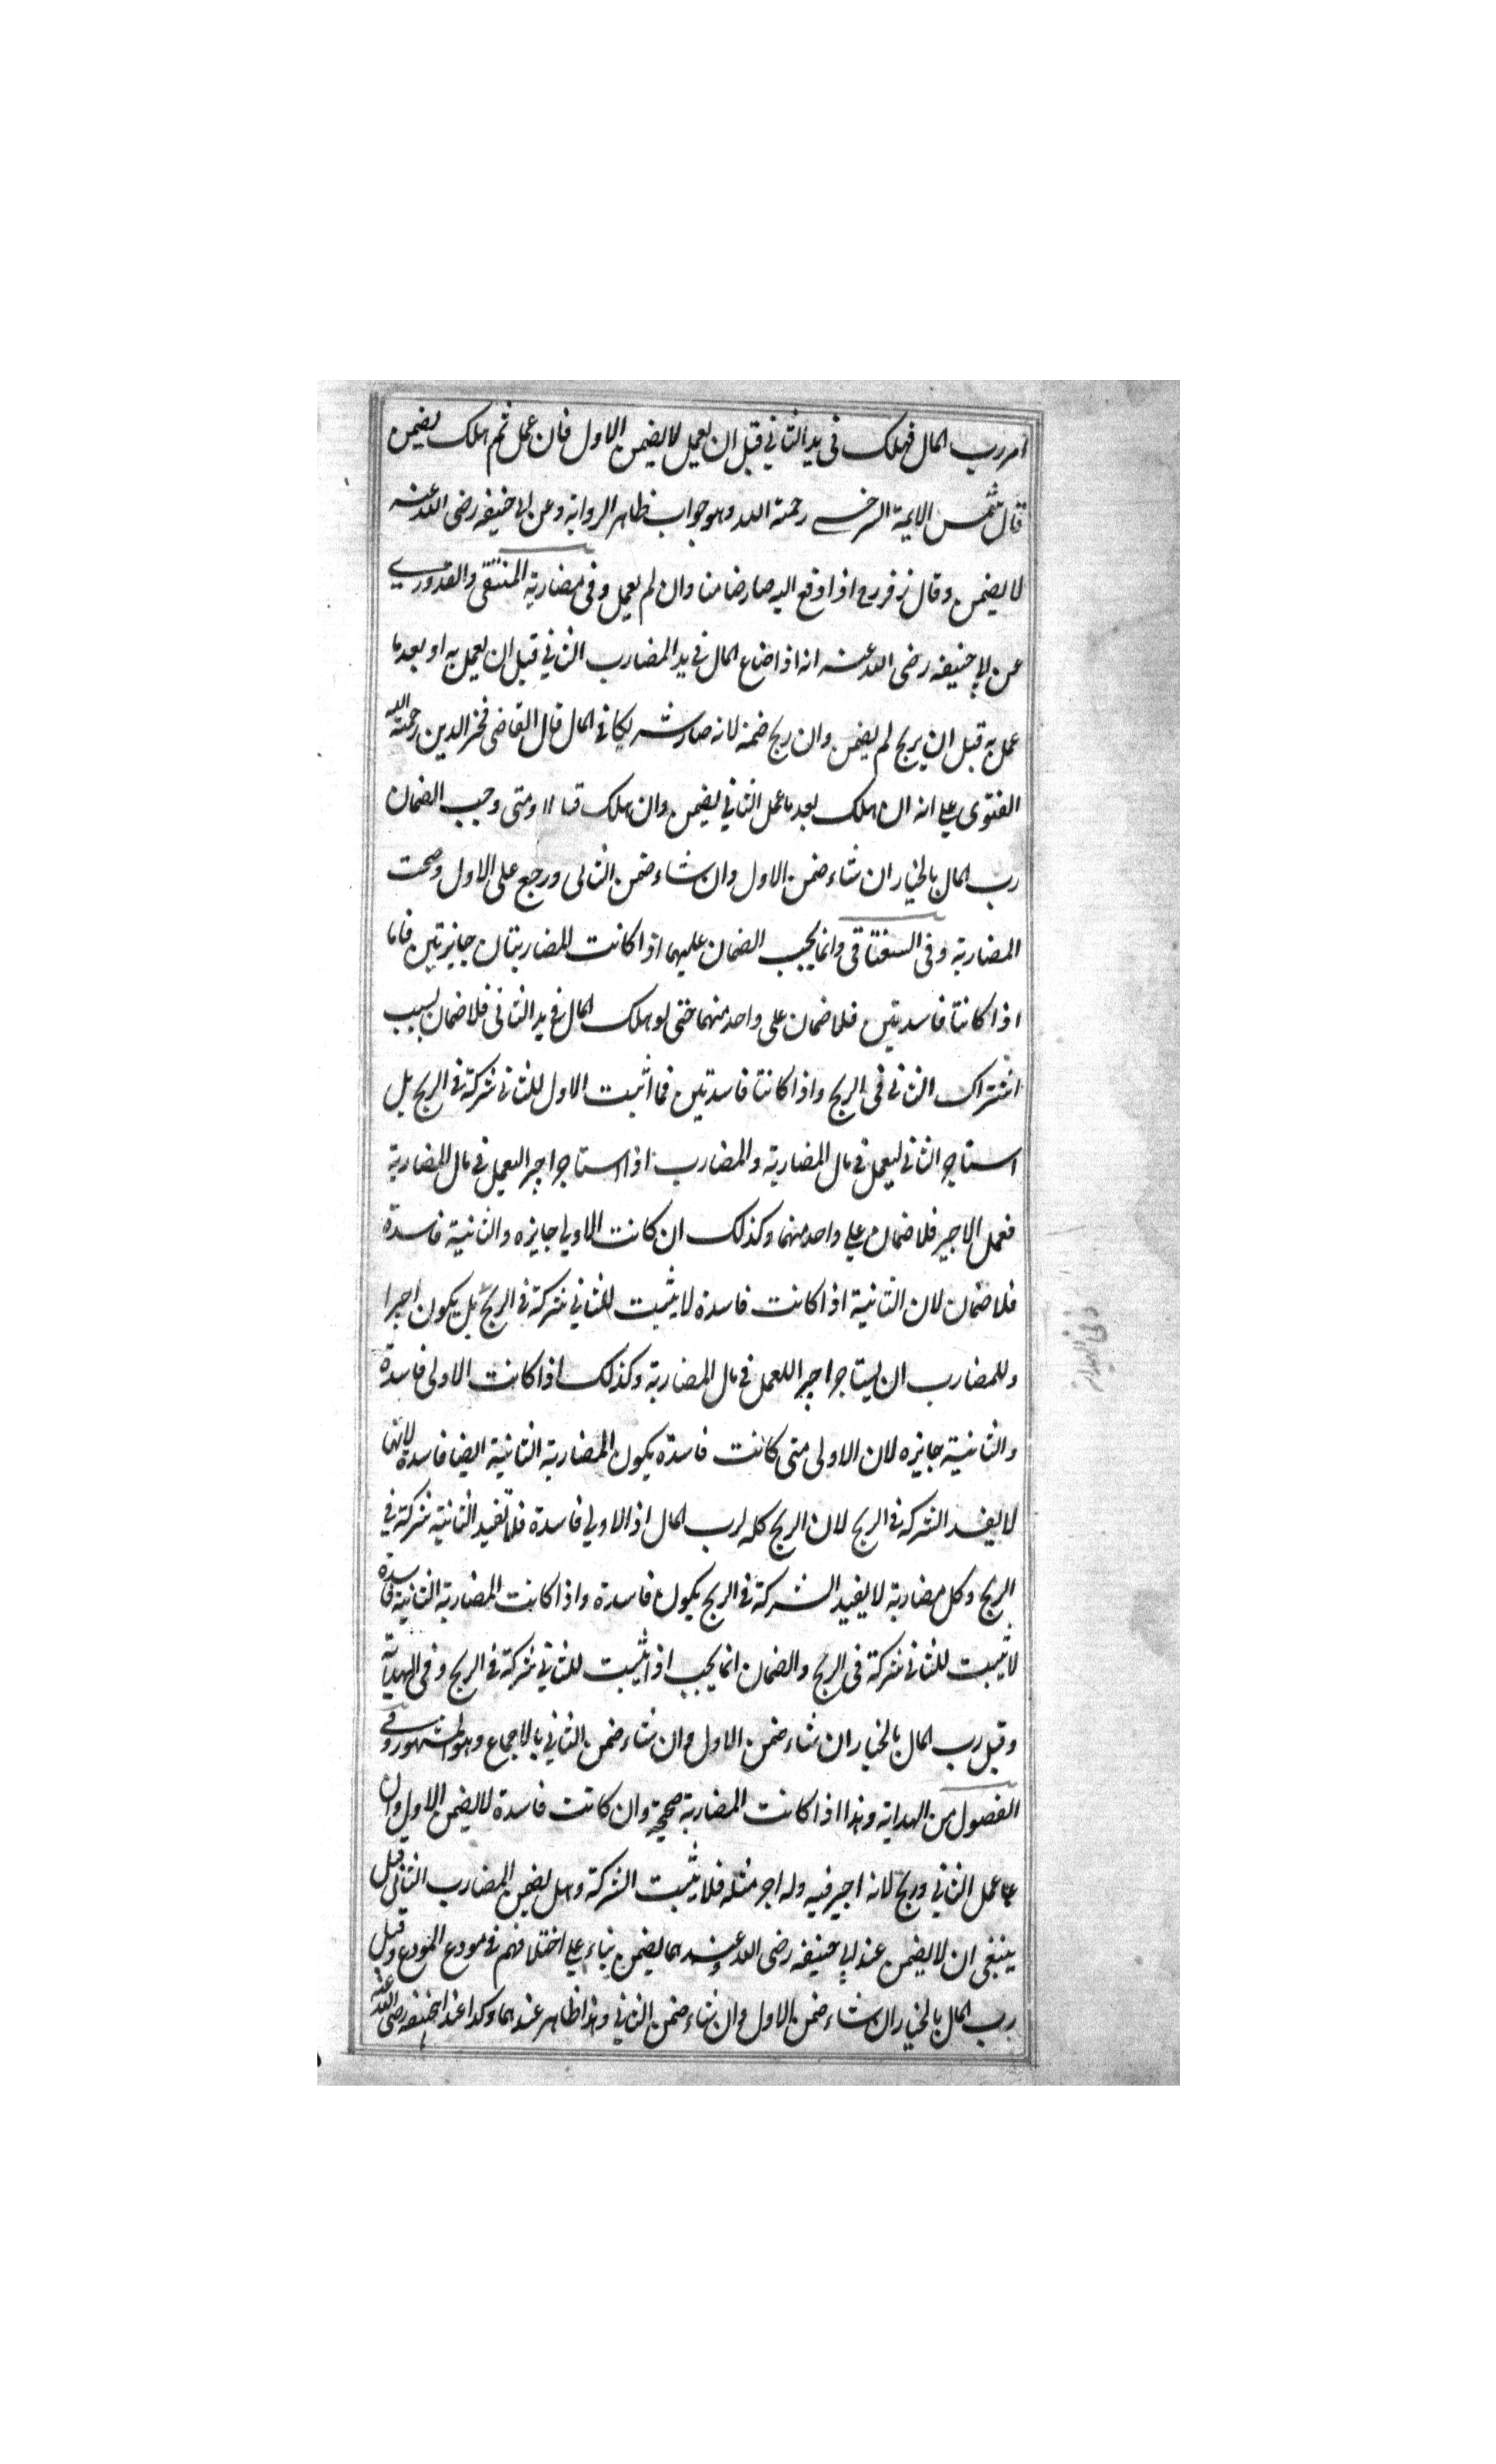 امر رب المال فهلك فى يد الثانى قبل ان يعمل لا يضمن الاول فان عمل ثم هلك يضمن
قال شمس الايمة السرخسى رحمة الله وهو جواب ظاهر الرواية وعن ابى حنيفه رضى الله عنه
لا يضمن وقال زفر رح اذا دفع اليه صار ضامنا وان لم يعمل وفى مضاربة المنتقى والقدورى
عن ابى حنيفه رضى الله عنه انه اذا ضاع المال فى يد المضارب الثانى قبل ان يعمل به او بعد ما
عمل به قبل ان يربح لم يضمن وان ربح ضمنه لانه صار شريكا فى المال قال القاضى فخر الدين رحمة الله
الفتوى على انه ان هلك بعد ما عمل الثانى يضمن وان هلك قبله لا ومتى وجب الضمان
رب المال بالخيار ان شاء ضمن الاول وان شاء ضمن الثانى ورجع على الاول وصحت
المضاربة وفى السغناقى وانما يجب الضمان عليهما اذا كانت المضاربتان جايزتين فاما
اذا كانتا فاسدتين فلا ضمان على واحد منهما حتى لو هلك المال فى يد الثانى فلا ضمان بسبب
اشتراك الثانى فى الربح واذا كانتا فاسدتين فما اثبت الاول للثانى شركة فى الربح بل
استاجر الثانى ليعمل فى مال المضاربة والمضارب اذا استاجر اجيرا ليعمل فى مال المضاربة
فعمل الاجير فلا ضمان على واحد منهما وكذلك ان كانت الاولى جايزه والثانية فاسدة
فلا ضمان لان الثانية اذا كانت فاسدة لا يثبت للثانى شركة فى الربح بل يكون اجيرا
وللمضارب ان يستاجر اجيرا للعمل فى مال المضاربة وكذلك اذا كانت الاولى فاسدة
والثانية جايزه لان الاولى متى كانت فاسدة يكون المضاربة الثانية ايضا فاسدة لانها
لا يفيد الشركه فى الربح لان الربح كله لرب المال اذ الاولى فاسدة فلا تفيد الثانية شركة فى
الربح وكل مضاربة لا يفيد الشركة فى الربح يكون فاسدة واذا كانت المضاربة الثانية فاسدة
لا يثبت للثانى شركة فى الربح والضمان انما يجب اذا يثبت للثانى شركة فى الربح وفى الهداية
وقيل رب المال بالخيار ان شاء ضمن الاول وان شاء ضمن الثانى بالاجماع وهو المشهور وفى
الفصول من الهداية وهذا اذا كانت المضاربة صحيحة وان كانت فاسدة لا يضمن الاول وان
عمل الثانى وربح لانه اجير فيه وله اجر مثله فلا يثبت الشركة وهل يضمن المضارب الثانى قيل
ينبغى ان لا يضمن عند ابى حنيفه رضى الله عنه وعندهما يضمن بناء على اختلافهم فى مودع المودع وقيل
رب المال بالخيار ان شاء ضمن الاول وان شاء ضمن الثانى وهذا ظاهر عندهما وكذا عند ابى حنيفه رضى الله عنه